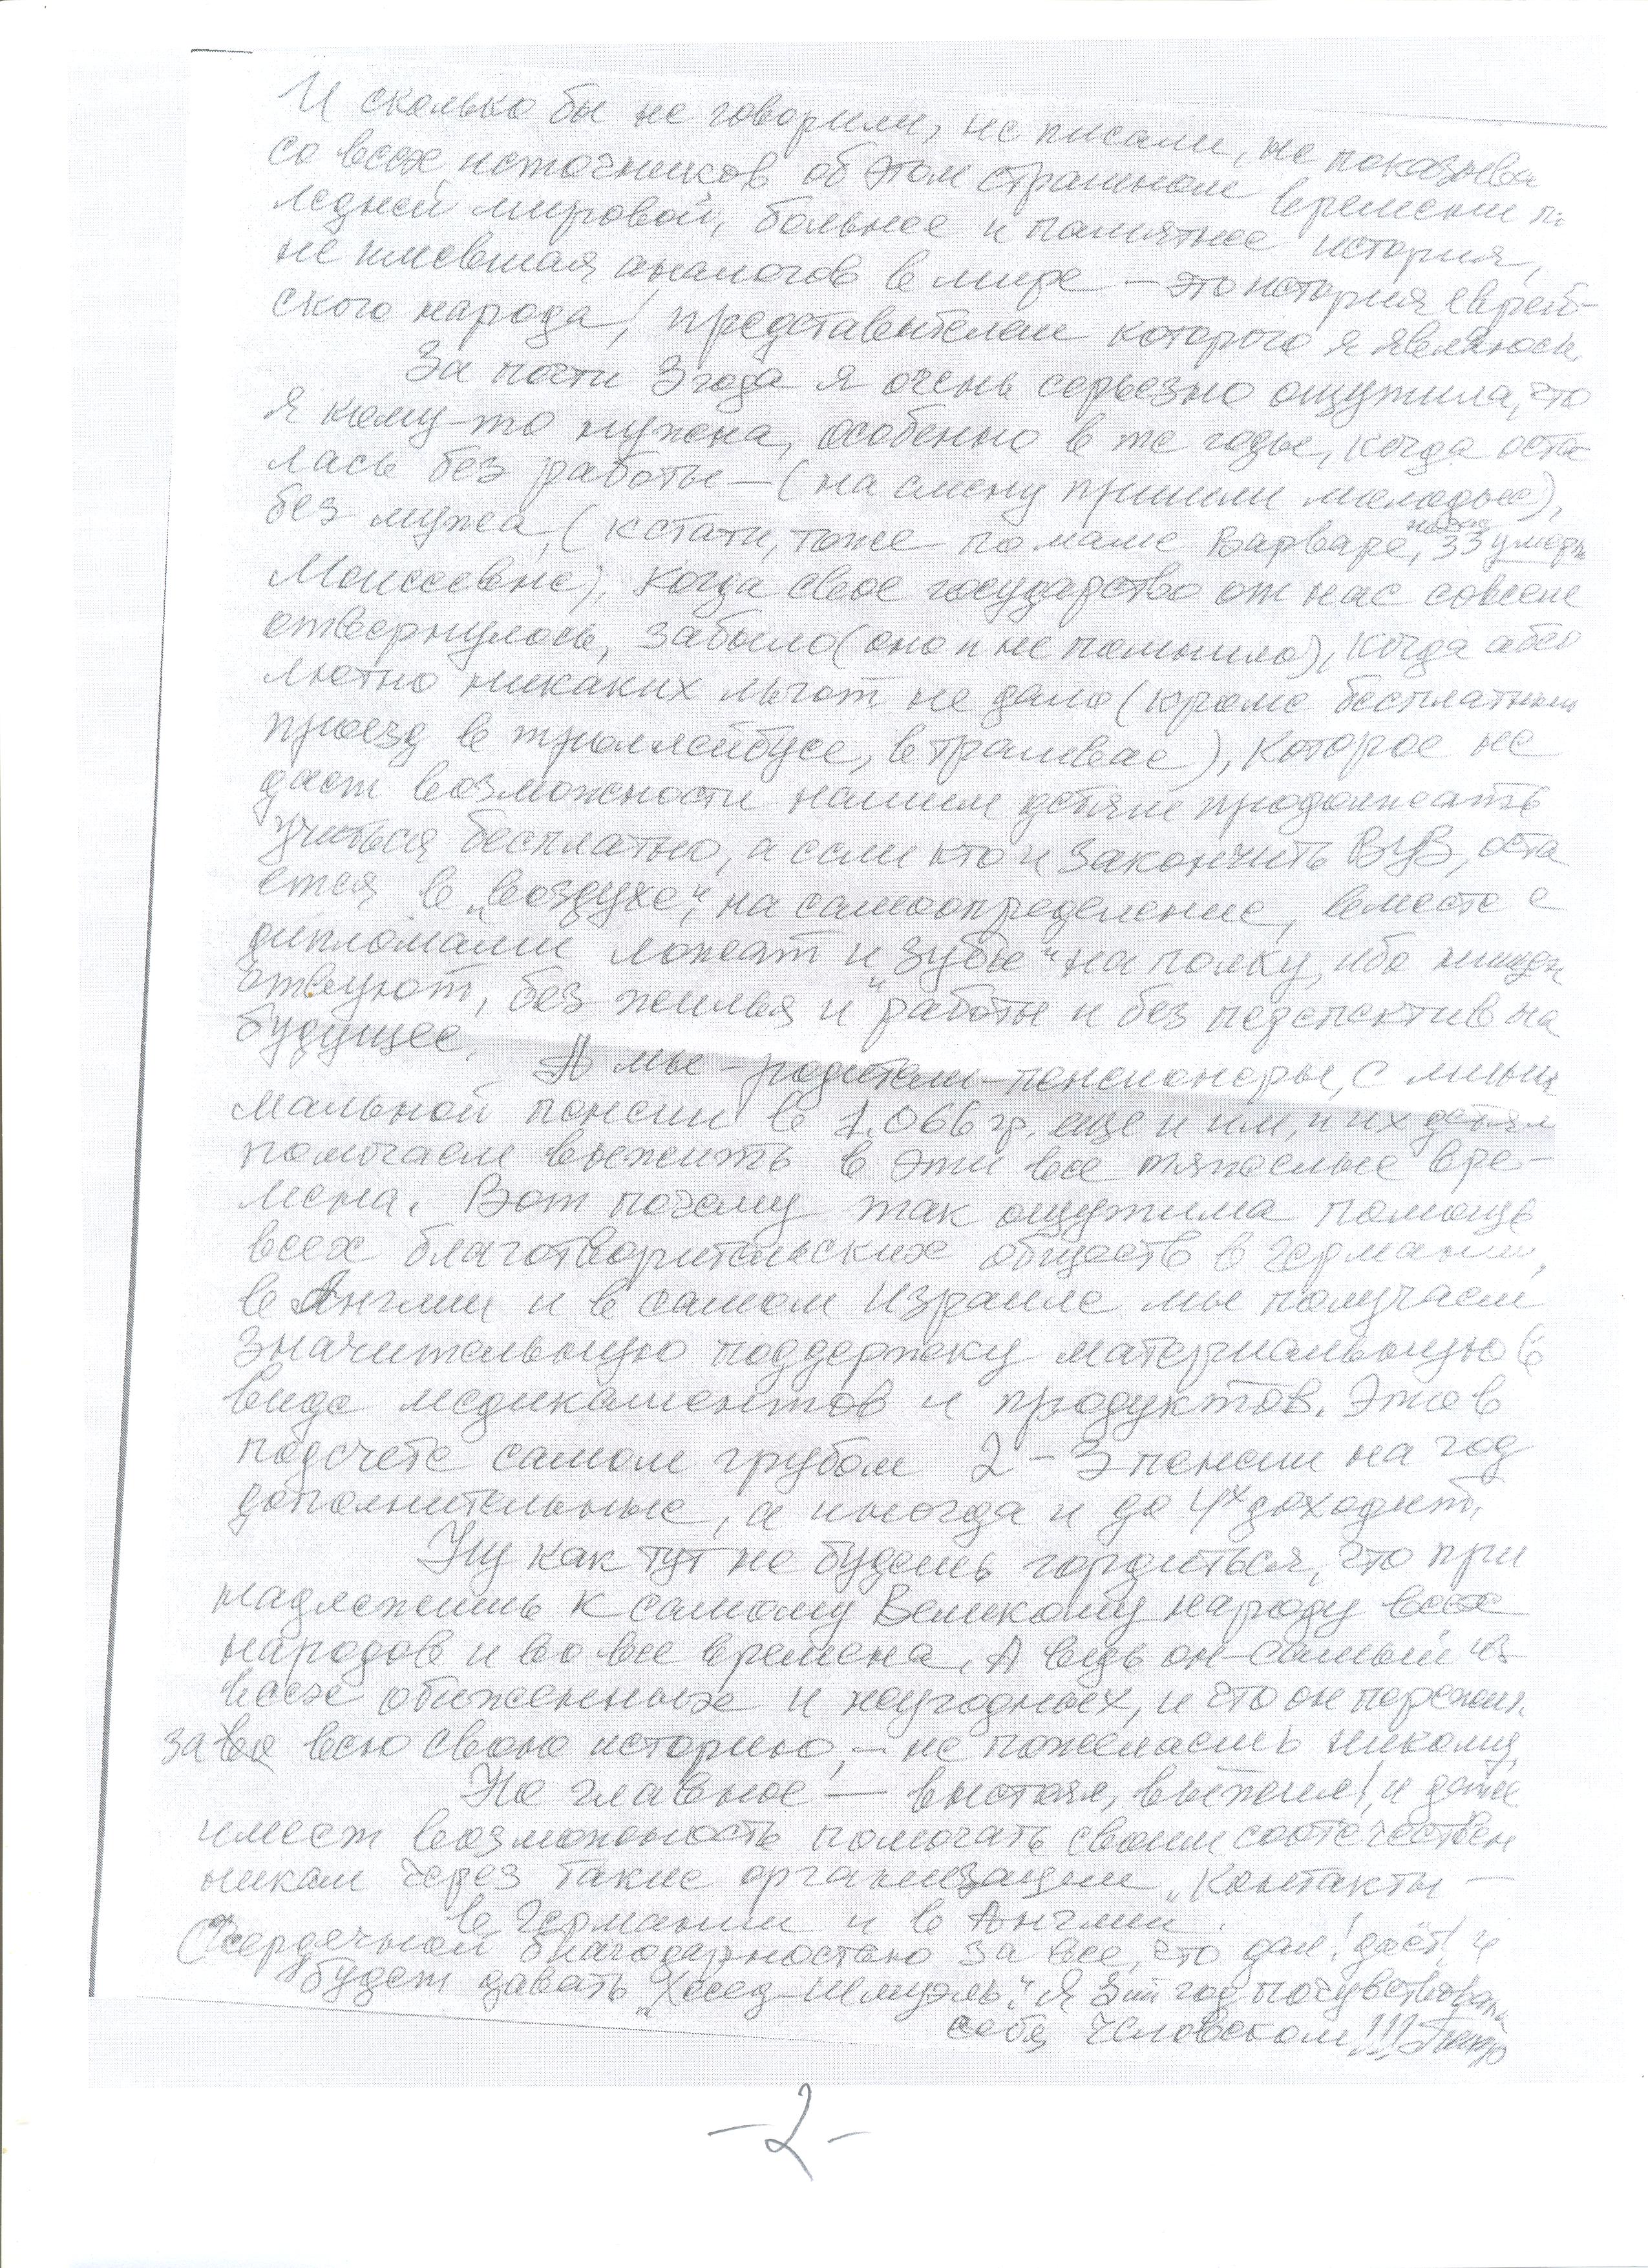 И сколько бы не говорили, не писали, не показыва
со всех источников об этом страшном времени п.
ледней мировой, больнее и памятнее история,
не имевшая аналогов в мире – это история еврей-
ского народа, представителем которого я являюсь.
За почти 3 года я очень серьезно ощутила, что
я кому-то нужна, особенно в те годы, когда оста-
лась без работы – (на смену пришли молодые),
без мужа, (кстати, тоже по маме Варваре, умерла
Моисеевне), когда свое государство от нас совсем
отвернулось, забыло (оно и не помнило), когда абсо
лютно никаких льгот не дало (кроме бесплатный
проезд в троллейбусе, в трамвае), которое не
дает возможности нашим детям продолжать
учиться бесплатно, а если кто и закончить ВУЗ, оста
ется в „воздухе", на самоопределение, вместе с
дипломами ложат и „зубы" на полку, ибо нищен
ствуют, без жилья и работы и без перспектив на
будущее. А мы – родители – пенсионеры, с мини
мальной пенсии в 1.066 гр. еще и им, и их детям
помогаем выжить в эти все тяжелые вре-
мена. Вот почему так ощутима помощь
всех благотворительских обществ в Германии,
в Англии и в самом Израиле мы получаем
значительную поддержку материальную в
виде медикаментов и продуктов. Это в
подсчете самом грубом 2 – 3 пенсии на год
дополнительные, а иногда и до 4х доходит.
Ну как тут не будешь гордиться, что при
надлежишь к самому Великому народу всех
народов и во все времена. А ведь он – самый из
всех обиженных и неугодных, и что он пережил
за всю свою историю, – не пожелаешь никому,
Но главное – выстоял, выжил! и даже
имеет возможность помогать своим соотечествен
никам через такие организации „Контакты –
в Германии и в Англии.
С сердечной благодарностью за все, что дал! даёт! и
будет давать „Хесед-Шмуэль". Я 3ий год почувствовала
себя человеком!!!
– 2 –